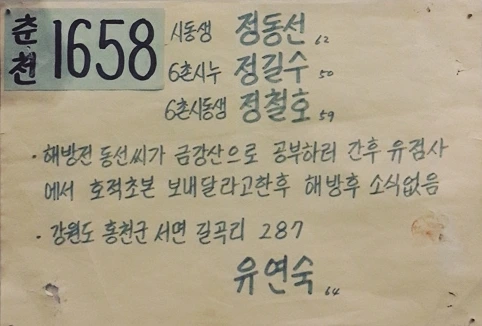 춘천 1658
시동생 정동선 62
6촌시누 정길수 50
6촌시동생 정철호 59
· 해방전 동선씨가 금강산으로 공부하러 간후 유점사
에서 호적초본 보내달라고한후 해방후 소식없음
· 강원도 홍천군 서면 길곡리 287
유연숙 64